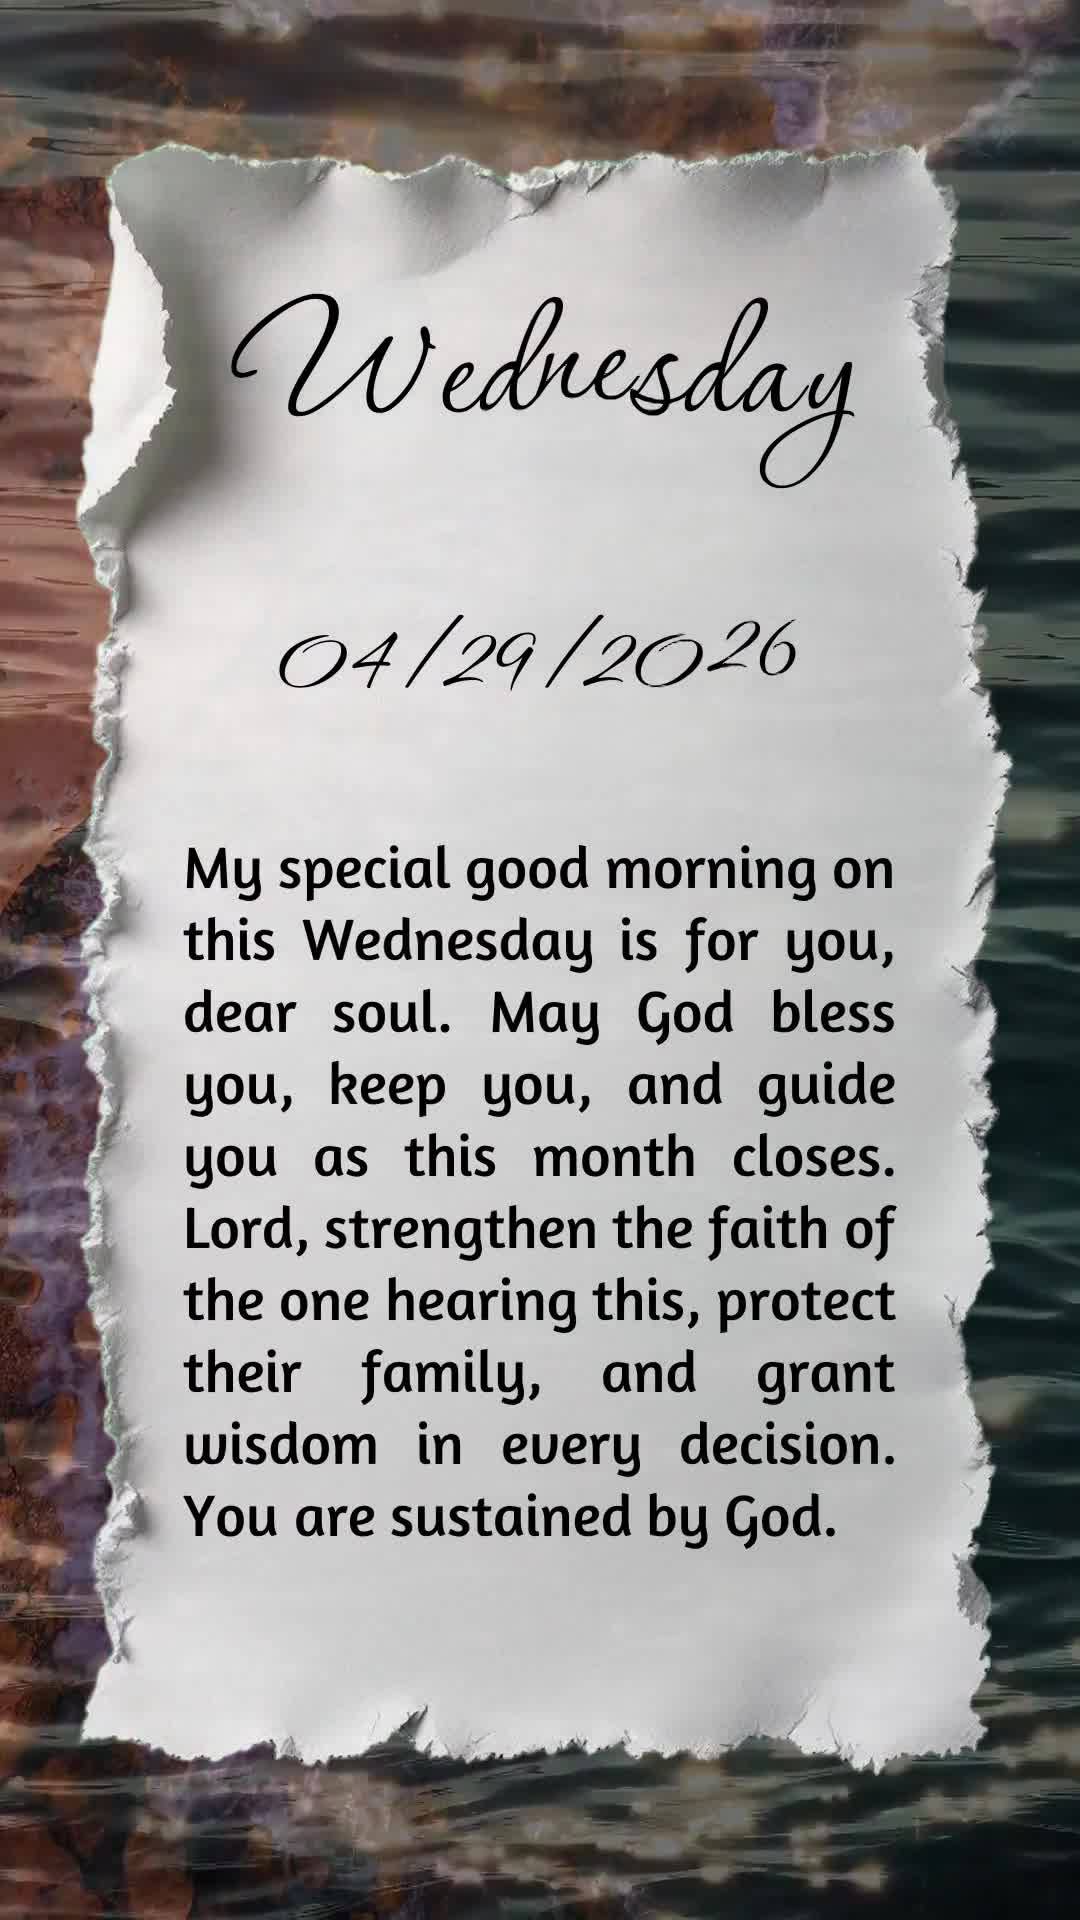 Wednesday
04/29/2026
My special good morning on
this Wednesday is for you,
dear soul. May God bless
you, keep you, and guide
you as this month closes.
Lord, strengthen the faith of
the one hearing this, protect
their family, and grant
wisdom in every decision.
You are sustained by God.